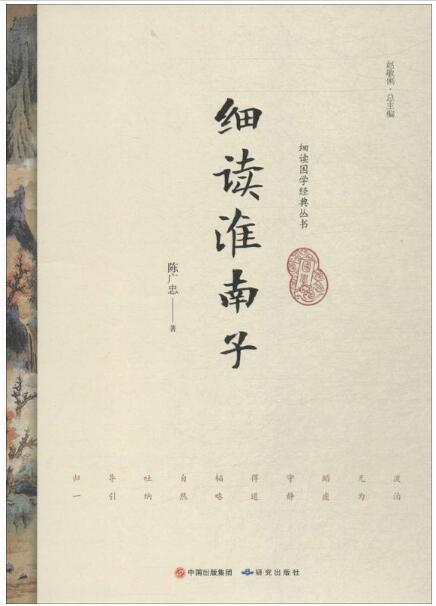 赵敏俐·总主编
细读国学经典丛书
细读淮南子
陈广忠——著
淡泊
无为
蹈虚
守静
得道
韬略
自然
吐纳
导引
归一
中国出版集团
研究出版社